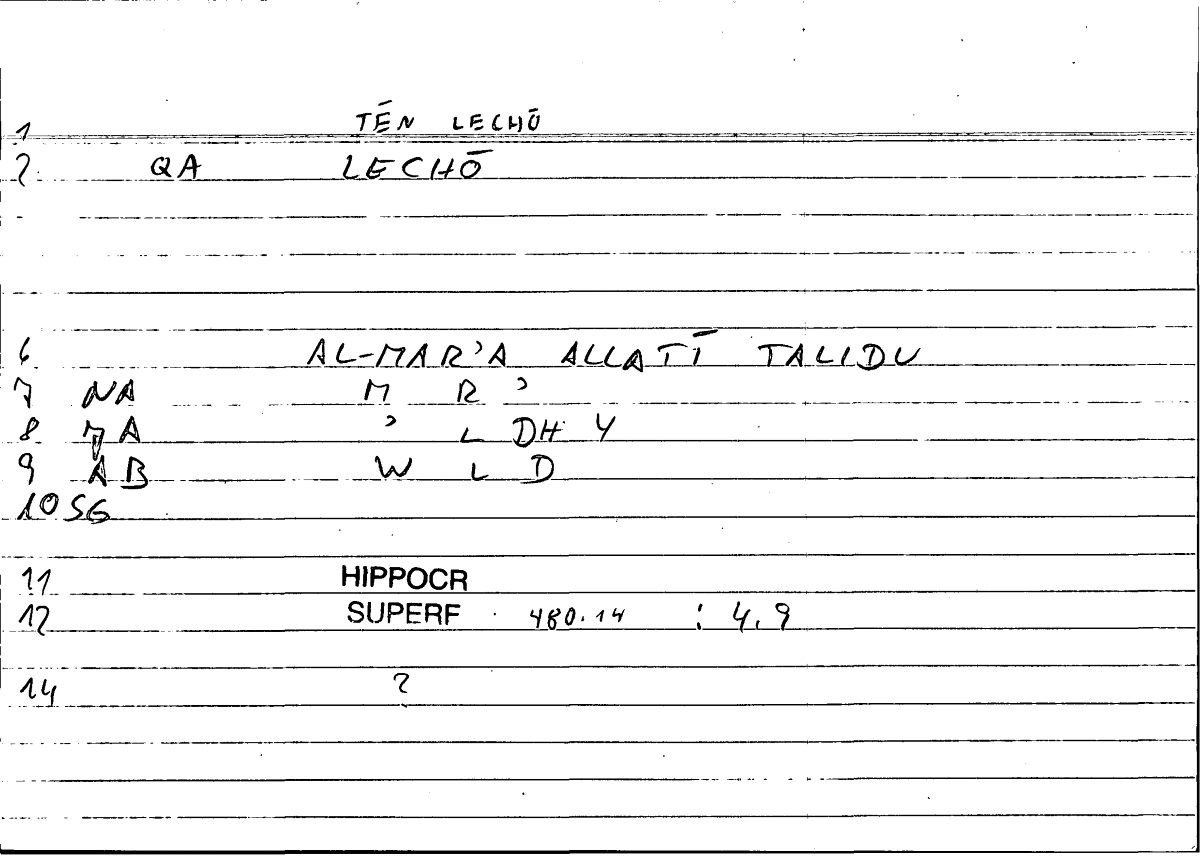 1 TĒN LECHŌ
2. QA LECHŌ
6 AL-MAR'A ALLATĪ TALIDU
7 NA M R '
8 MA ' L DH Y
9 AB W L D
10 SG
11 HIPPOCR
12 SUPERF 480.14 : 4.9
14 ?